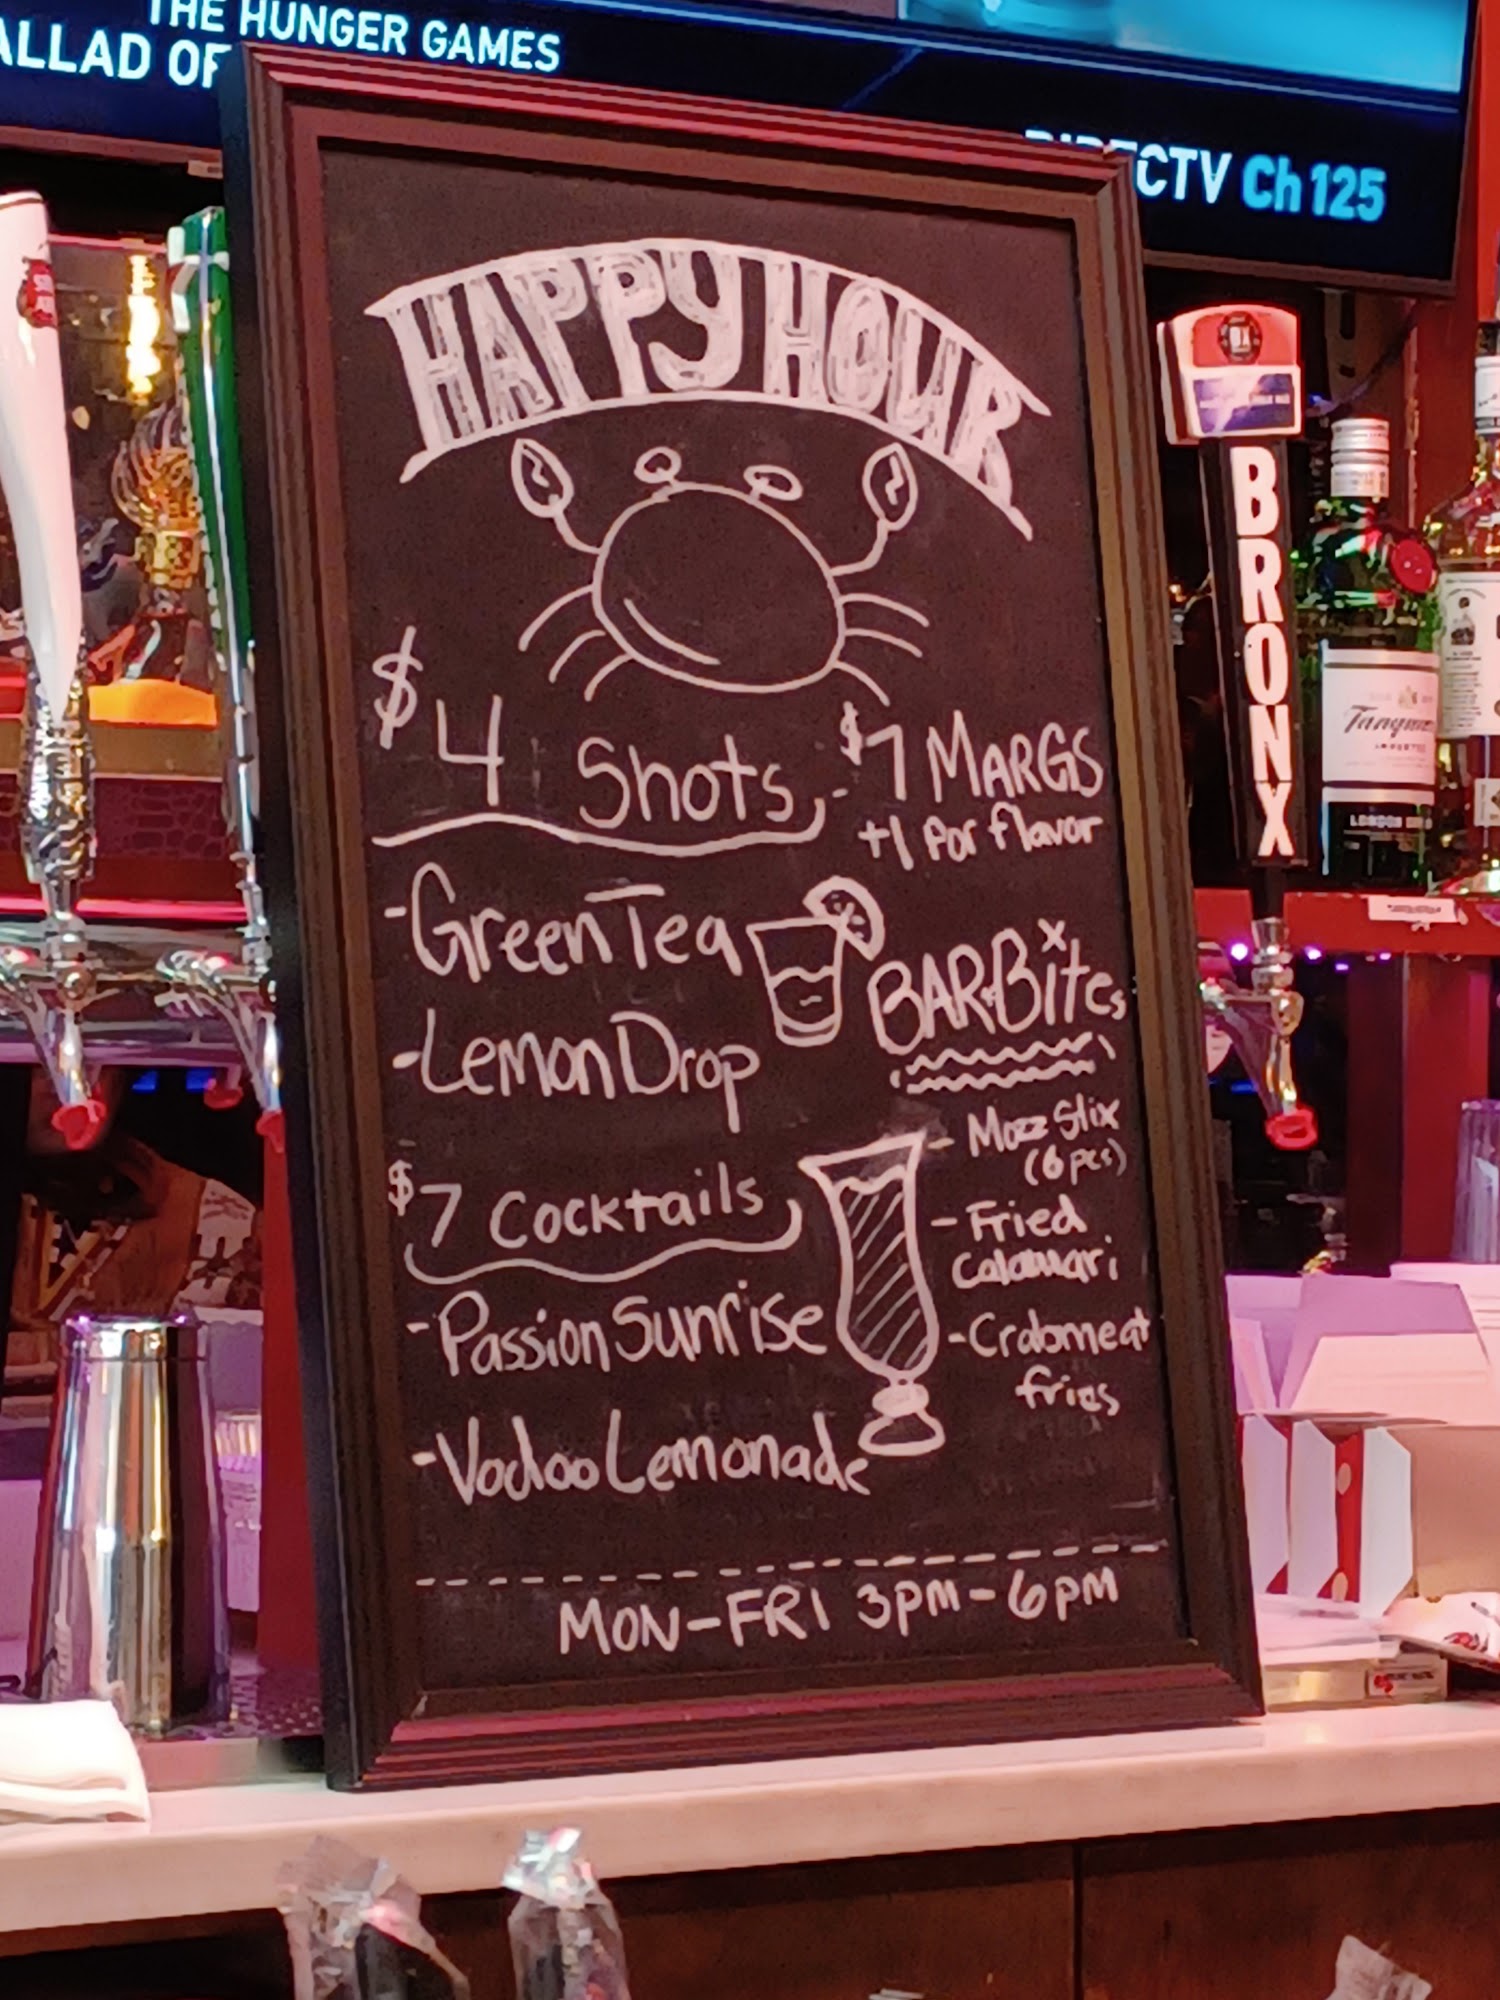 THE HUNGER GAMES
ALLAD OF
DIRECTV Ch 125
HAPPY HOUR
$4 Shots
- Green Tea
- Lemon Drop
$7 Cocktails
- Passion Sunrise
- Vodoo Lemonade
- $7 MARGS
+1 for flavor
BAR Bites
- Mozz Stix
(6 pcs)
- Fried
Calamari
- Crabmeat
fries
MON-FRI 3PM-6PM
BRONX
Tanqu
IMPORTED
LONDON DR